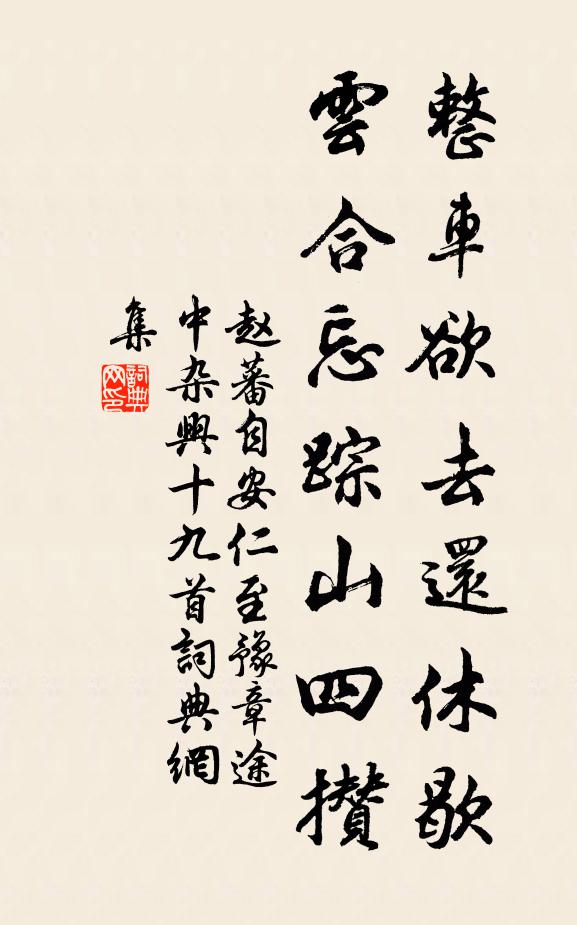 整車欲去還休歇
雲合忘踪山四攢
赵蕃自安仁至豫章途
中杂興十九首詞典網
集
詞典
网印